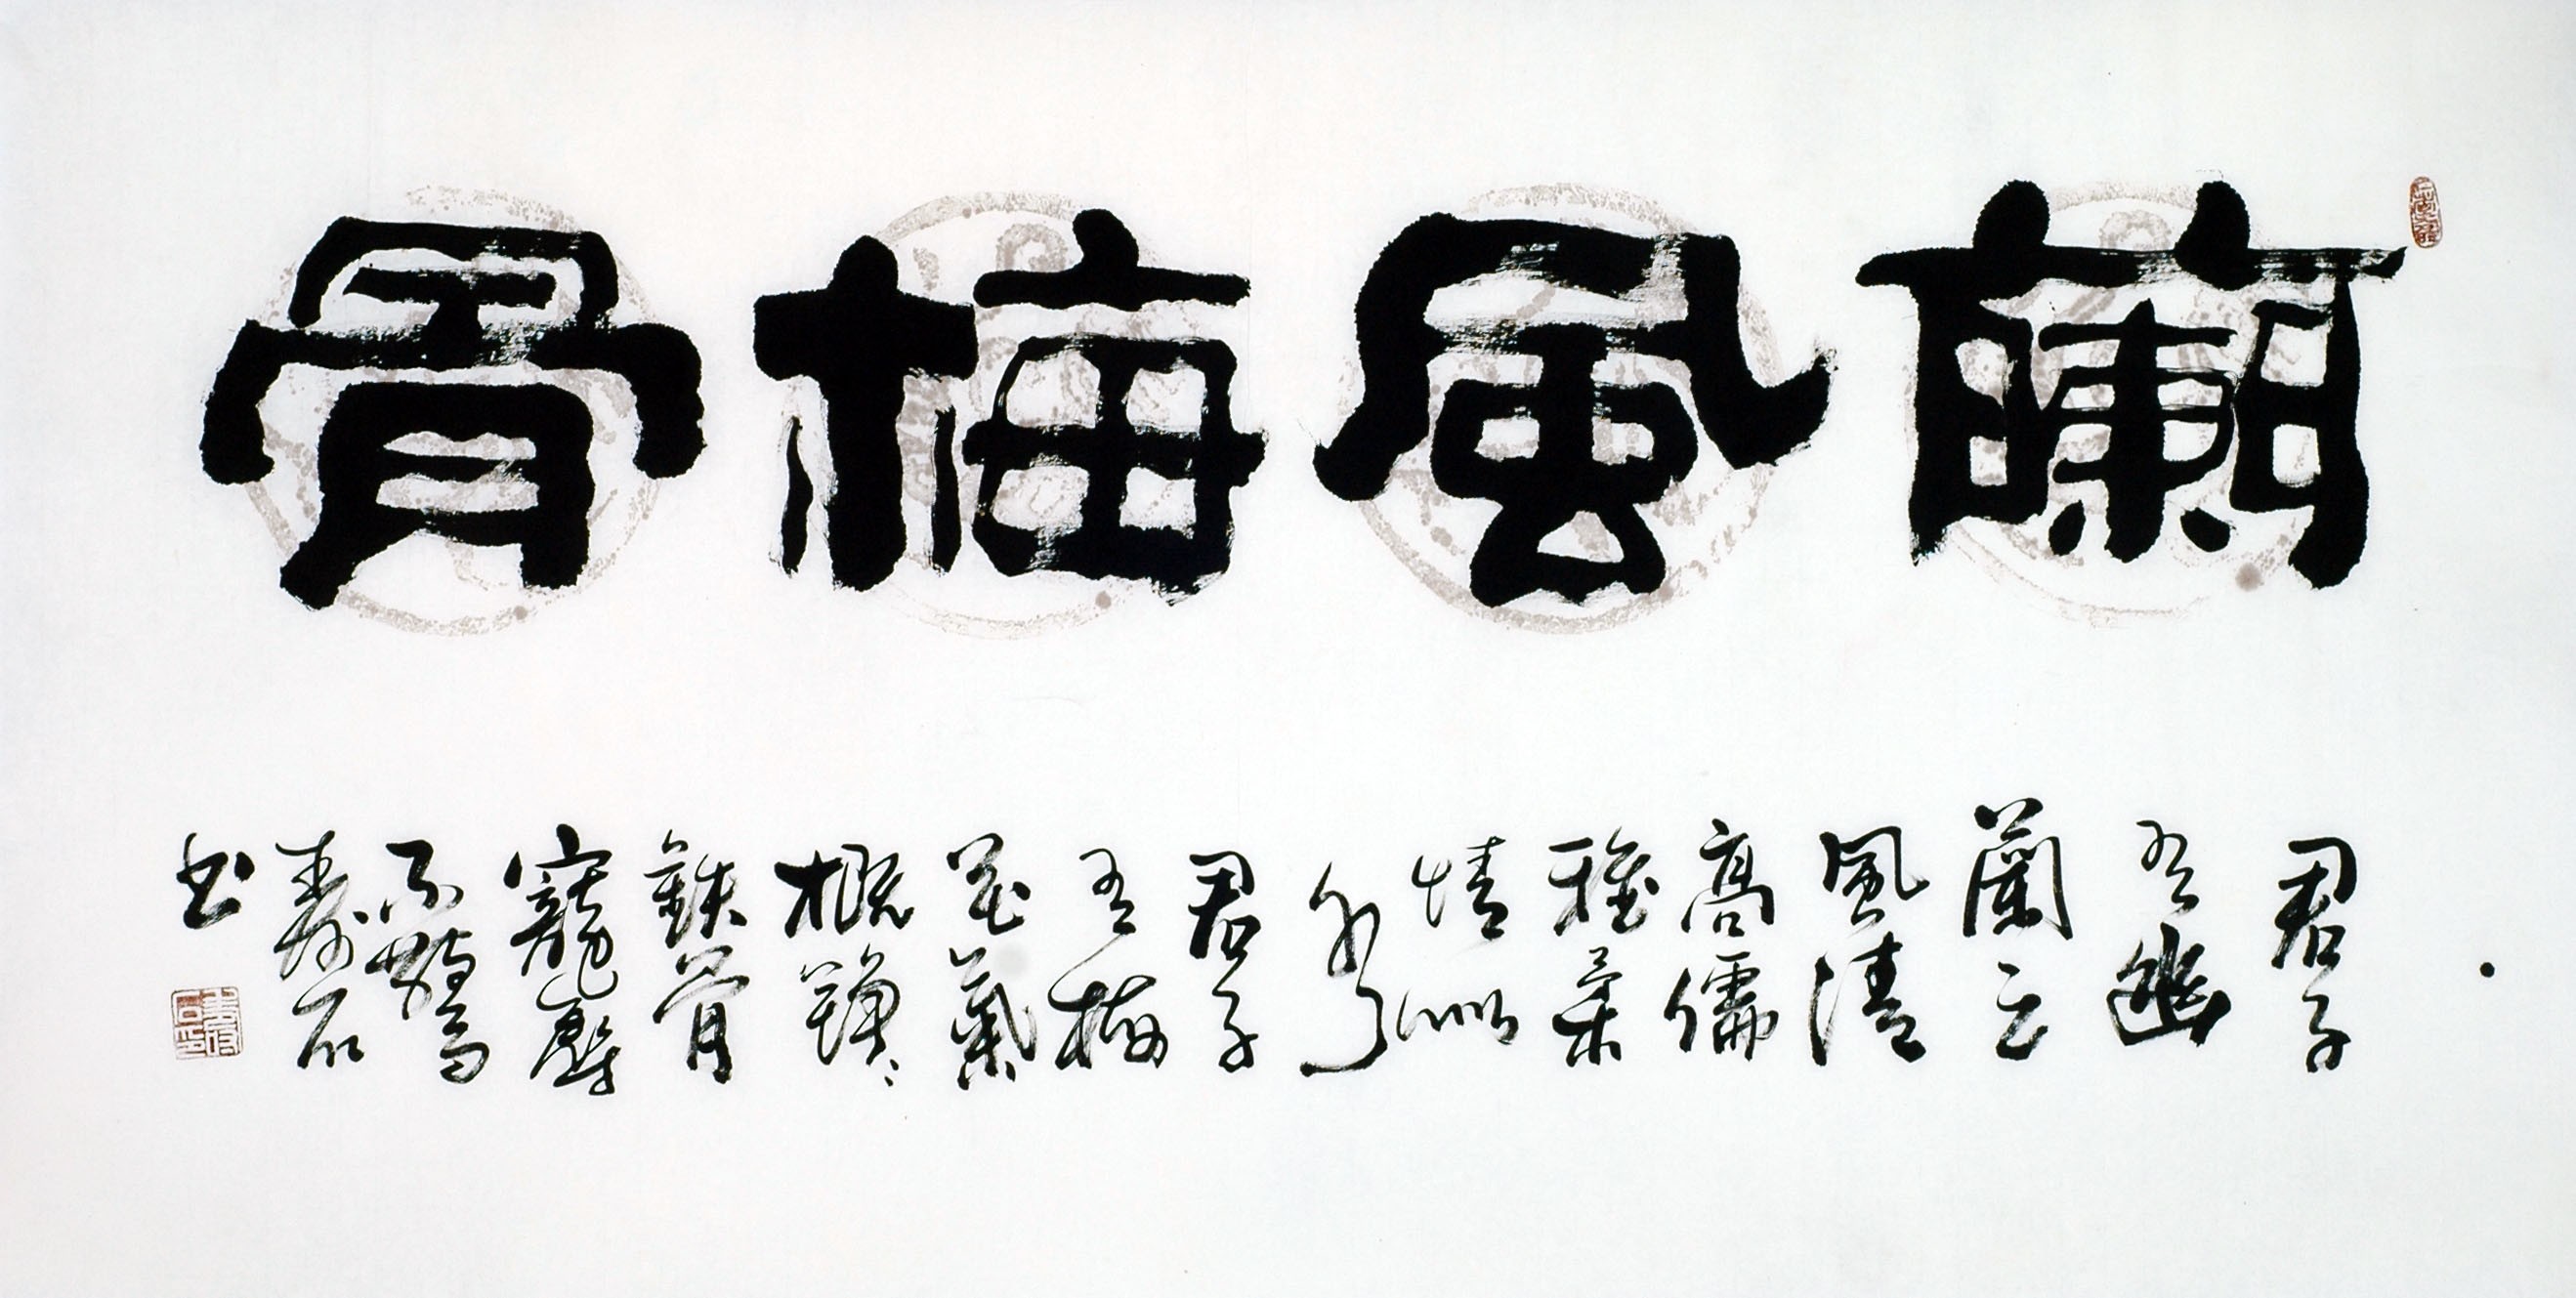 蘭風梅骨
君子
有幽
蘭之
風清
高儒
雅柔
情似
水
君子
有梅
花氣
概錚々
鉄骨
寵辱
不驚
壽石
书